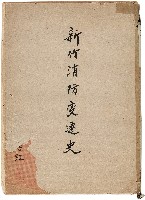 新竹消防変遷史